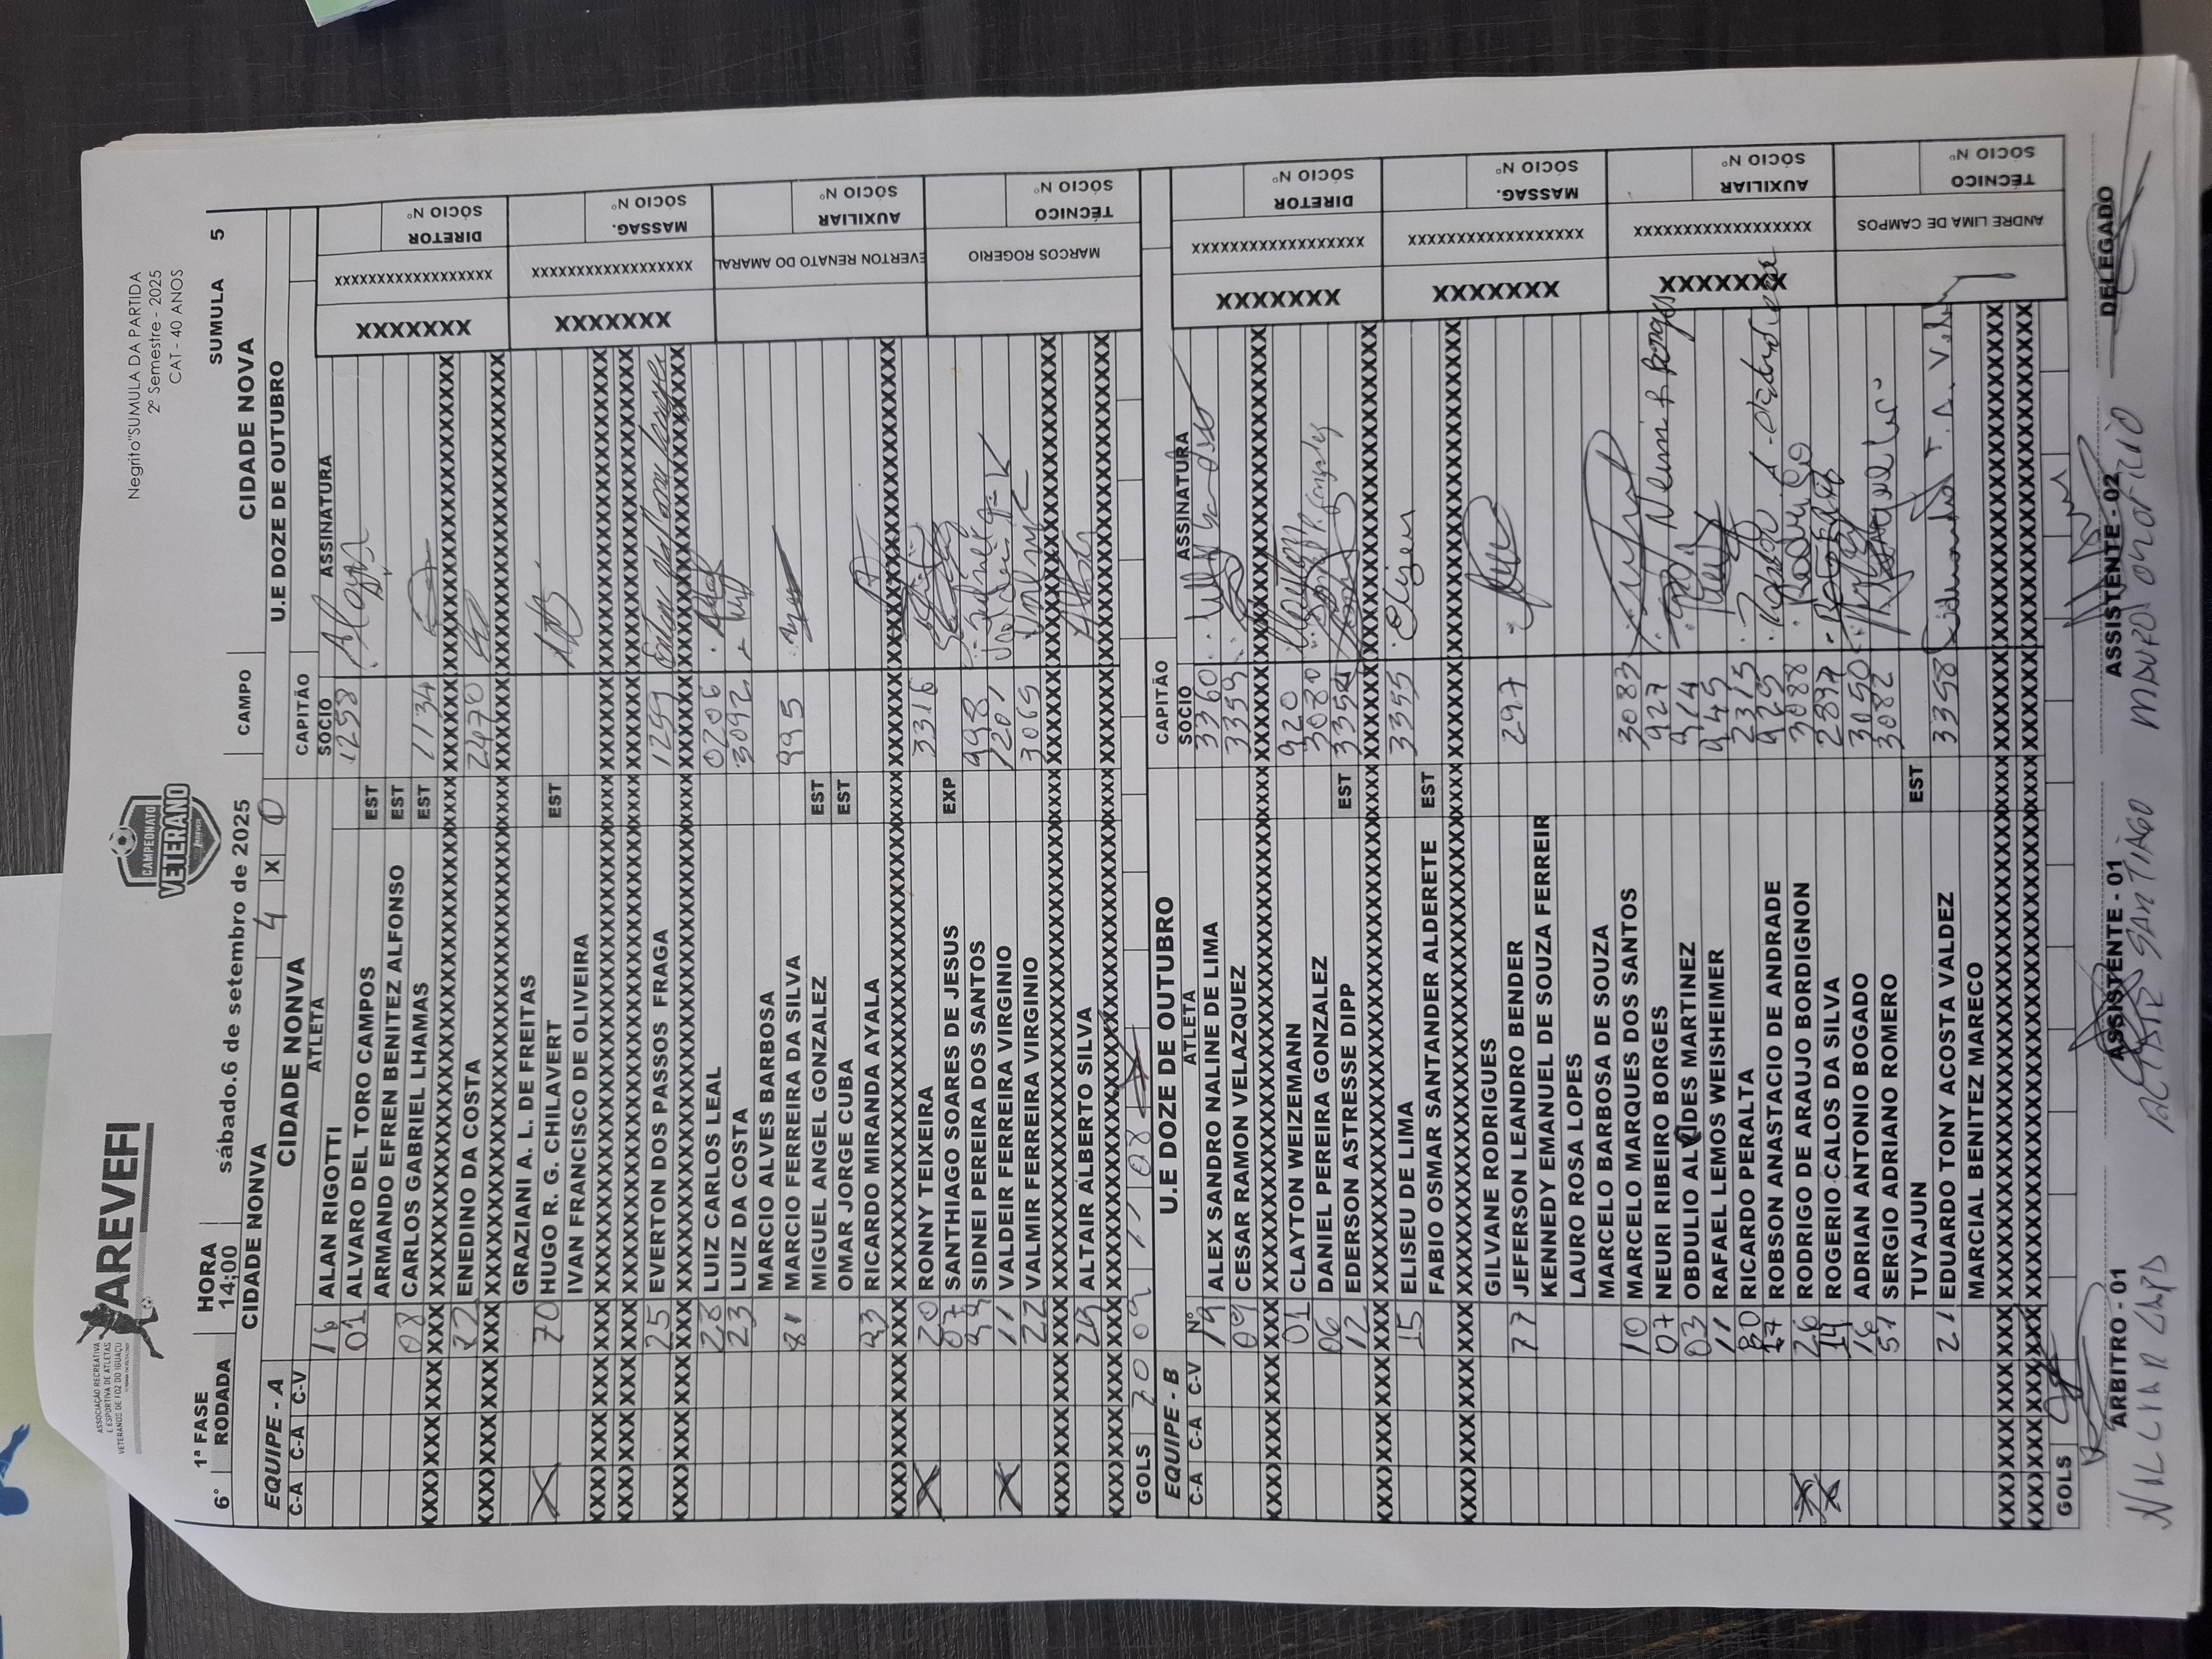 AREVEFI
ASSOCIAÇÃO RECREATIVA
E ESPORTIVA DE ATLETAS
VETERANOS DE FOZ DO IGUAÇU
CAMPEONATO
VETERANO
Negrito"SUMULA DA PARTIDA
2º Semestre - 2025
CAT - 40 ANOS
1ª FASE HORA
6º RODADA 14;00 sábado.6 de setembro de 2025 CAMPO CIDADE NOVA SUMULA 5
CIDADE NONVA 4 X 0 U.E DOZE DE OUTUBRO
EQUIPE - A CIDADE NONVA CAPITÃO
C-A C-A C-V ATLETA SÓCIO ASSINATURA
16 ALAN RIGOTTI 1258
01 ALVARO DEL TORO CAMPOS EST
ARMANDO EFREN BENITEZ ALFONSO EST
08 CARLOS GABRIEL LHAMAS EST 1134
XXXXXXXXXXXXXXXXXXXX
22 ENEDINO DA COSTA 2470
XXXXXXXXXXXXXXXXXXXX
GRAZIANI A. L. DE FREITAS
X 70 HUGO R. G. CHILAVERT EST
IVAN FRANCISCO DE OLIVEIRA
XXXXXXXXXXXXXXXXXXXX
XXXXXXXXXXXXXXXXXXXX
25 EVERTON DOS PASSOS FRAGA 1259
XXXXXXXXXXXXXXXXXXXX
28 LUIZ CARLOS LEAL 0206
23 LUIZ DA COSTA 3092
MARCIO ALVES BARBOSA
81 MARCIO FERREIRA DA SILVA 995
MIGUEL ANGEL GONZALEZ EST
OMAR JORGE CUBA EST
93 RICARDO MIRANDA AYALA
XXXXXXXXXXXXXXXXXXXX
X 20 RONNY TEIXEIRA 3316
07 SANTHIAGO SOARES DE JESUS EXP
99 SIDNEI PEREIRA DOS SANTOS 998
X 11 VALDEIR FERREIRA VIRGNIO 1201
22 VALMIR FERREIRA VIRGINIO 3065
XXXXXXXXXXXXXXXXXXXX
29 ALTAIR ALBERTO SILVA
XXXXXXXXXXXXXXXXXXXX
GOLS 20 09 11 08
XXXXXXX XXXXXXXXXXXXXXXXXX DIRETOR SÓCIO Nº
XXXXXXX XXXXXXXXXXXXXXXXXX MASSAG. SÓCIO Nº
EVERTON RENATO DO AMARAL AUXILIAR SÓCIO Nº
MARCOS ROGERIO TÉCNICO SÓCIO Nº
EQUIPE - B U.E DOZE DE OUTUBRO CAPITÃO
C-A C-A C-V Nº ATLETA SÓCIO ASSINATURA
19 ALEX SANDRO NALINE DE LIMA 3360
09 CESAR RAMON VELAZQUEZ 3359
XXXXXXXXXXXXXXXXXXXX
01 CLAYTON WEIZEMANN 920
06 DANIEL PEREIRA GONZALEZ 3080
12 EDERSON ASTRESSE DIPP EST 3354
XXXXXXXXXXXXXXXXXXXX
15 ELISEU DE LIMA 3355 Elizeu
FABIO OSMAR SANTANDER ALDERETE EST
XXXXXXXXXXXXXXXXXXXX
GILVANE RODRIGUES
77 JEFERSON LEANDRO BENDER 297
KENNEDY EMANUEL DE SOUZA FERREIR
LAURO ROSA LOPES
MARCELO BARBOSA DE SOUZA
10 MARCELO MARQUES DOS SANTOS 3083
07 NEURI RIBEIRO BORGES 927 Neuri R Borges
03 OBDULIO ALCIDES MARTINEZ 914
11 RAFAEL LEMOS WEISHEIMER 945
80 RICARDO PERALTA 2315
17 ROBSON ANASTACIO DE ANDRADE 925
X 26 RODRIGO DE ARAUJO BORDIGNON 3088
X 14 ROGERIO CALOS DA SILVA 2897
16 ADRIAN ANTONIO BOGADO 3050
51 SERGIO ADRIANO ROMERO 3082
TUYAJUN EST
21 EDUARDO TONY ACOSTA VALDEZ 3358
MARCIAL BENITEZ MARECO
XXXXXXXXXXXXXXXXXXXX
XXXXXXXXXXXXXXXXXXXX
GOLS
XXXXXXX XXXXXXXXXXXXXXXXXX DIRETOR SÓCIO Nº
XXXXXXX XXXXXXXXXXXXXXXXXX MASSAG. SÓCIO Nº
XXXXXXX XXXXXXXXXXXXXXXXXX AUXILIAR SÓCIO Nº
ANDRE LIMA DE CAMPOS TÉCNICO SÓCIO Nº
ÁRBITRO - 01 ASSITENTE - 01 ASSISTENTE - 02 DELEGADO
SANTIAGO MAURO ONOFRIO